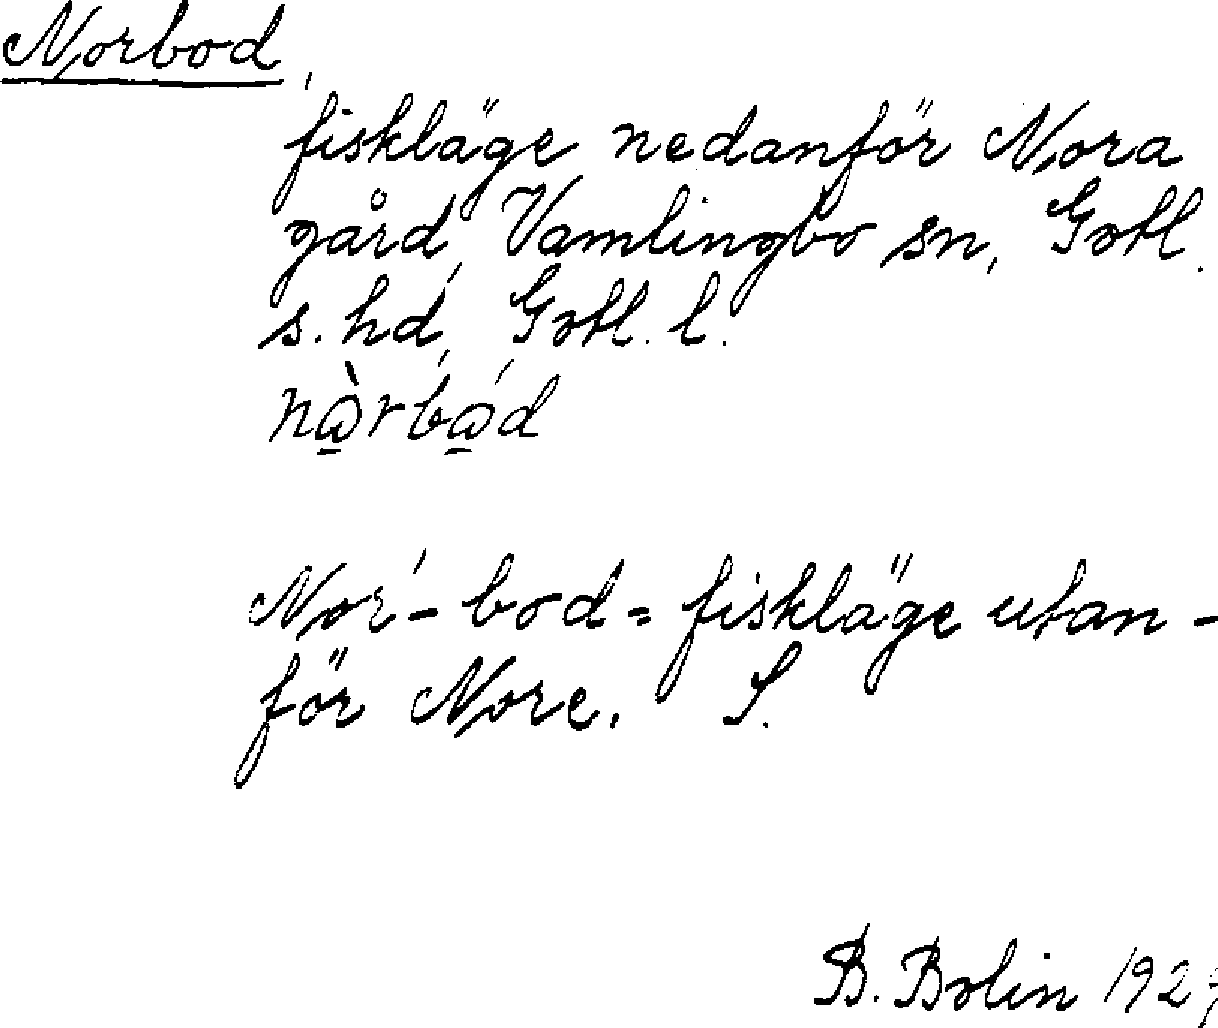 Norbod,
fiskläge nedanför Nora
gård, Vamlingbo sn, Gotl.
s. hd, Gotl. l.
Nor'-bod = fiskläge utan-
för Nore. S.
B. Bolin